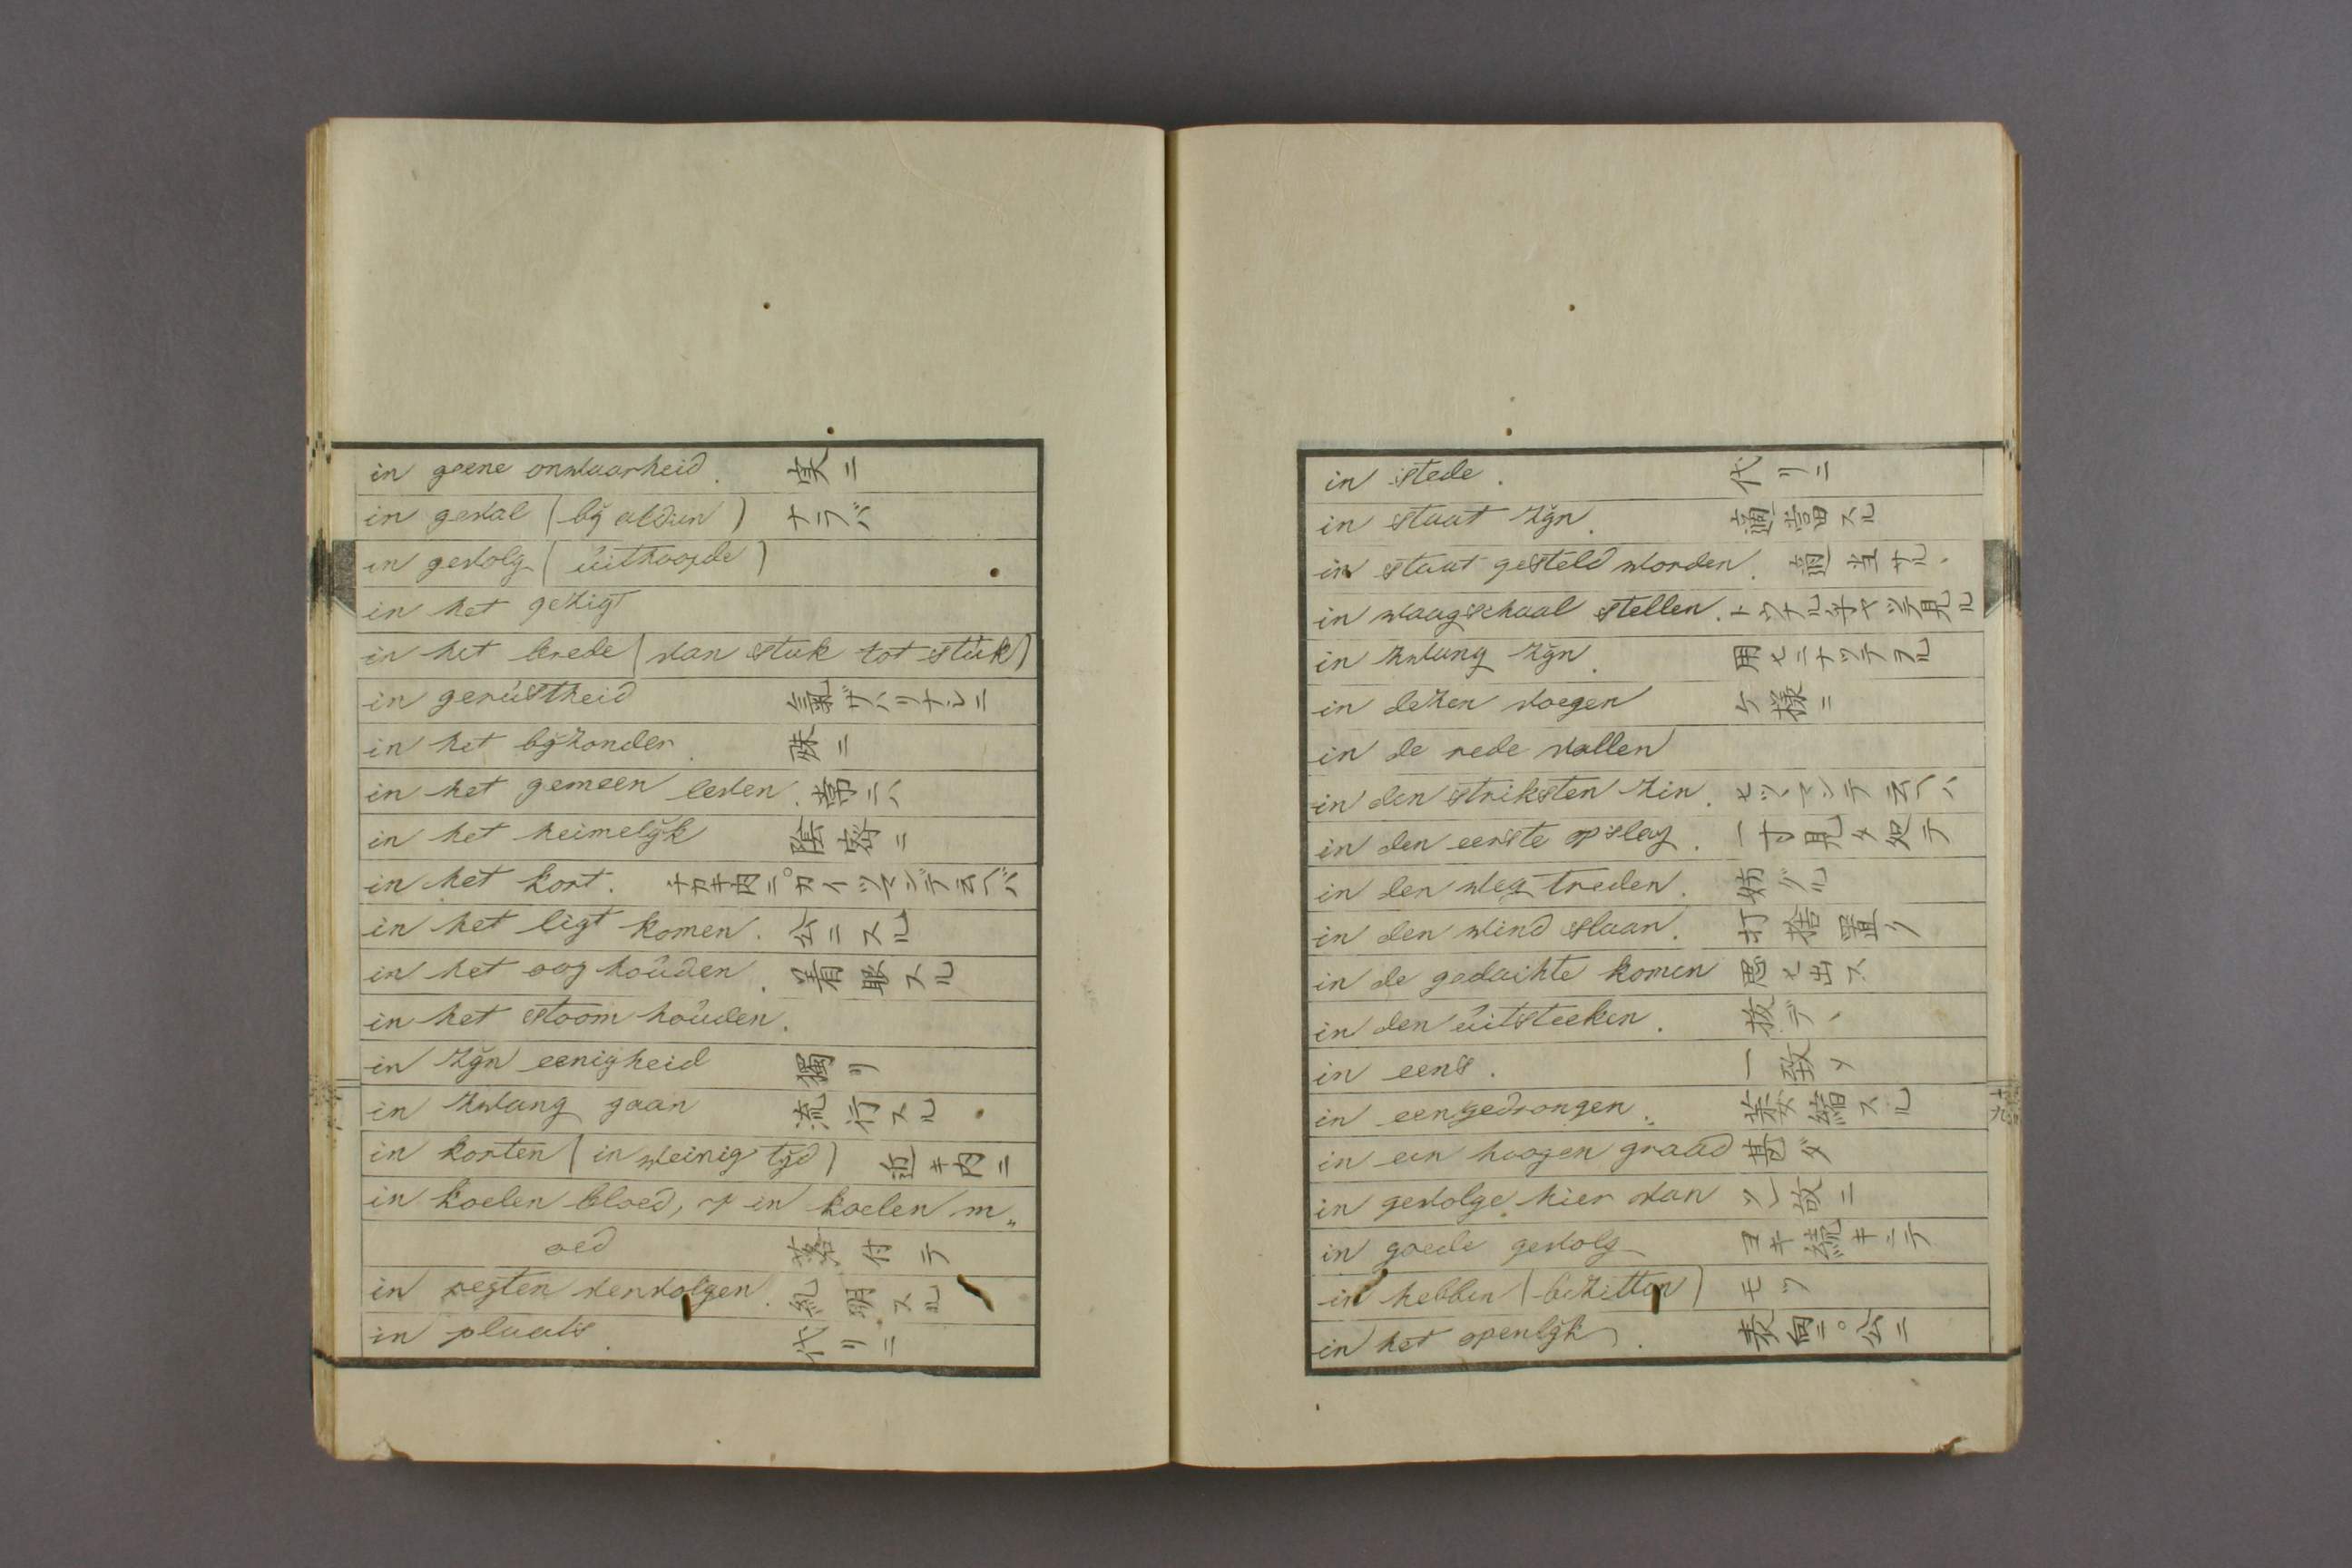 in geene onwaarheid. 実ニ
in geval (bÿ aldien) ナラバ
in gevolg (úithoofde)
in het gezigt
in het brede (van stuk tot stúk)
in gerústheid 氣ザハリナシニ
in het bÿzonder. 殊ニ
in het gemeen leven. 常ニハ
in het heimelÿk 陰密ニ
in het kort. チカキ内ニ。カイツマンデ云ヘバ
in het ligt komen. 公ニスル
in het oog hoúden. 着眼スル
in het stoom hoúden.
in zÿn eenigheid 獨リ
in zwang gaan 流行スル
in korten (in weinig tÿd) 近キ内ニ
in koelen bloed, of in koelen m„
oed 落付テ
in regten vervolgen. 糺明スル
in plaats. 代リニ
in stede. 代リニ
in staat zÿn. 適当スル
in staat gesteld worden. 適当サル丶
in waagschaal stellen. 見ル
in zwang zÿn. 用ヒニナツテヲル
in dezen voegen ケ様ニ
in de rede vallen
in den striksten zin. ヒツマンテ云ヘハ
in den eerste opslag. 一寸見タ処テ
in den weg treden. 妨グル
in den wind slaan. 打捨置ク
in de gedachte komen 思ヒ出ス
in den úitsteeken. 抜デ丶
in eens. 一致ソ
in eengedrongen. 縮スル
in een hoogen graad 甚ダ
in gevolge hier van ソレ故ニ
in goede gevolg ヨキ続キニテ
in hebben (bezitten) モツ
in het openlÿk. 表向ニ。公ニ
十九